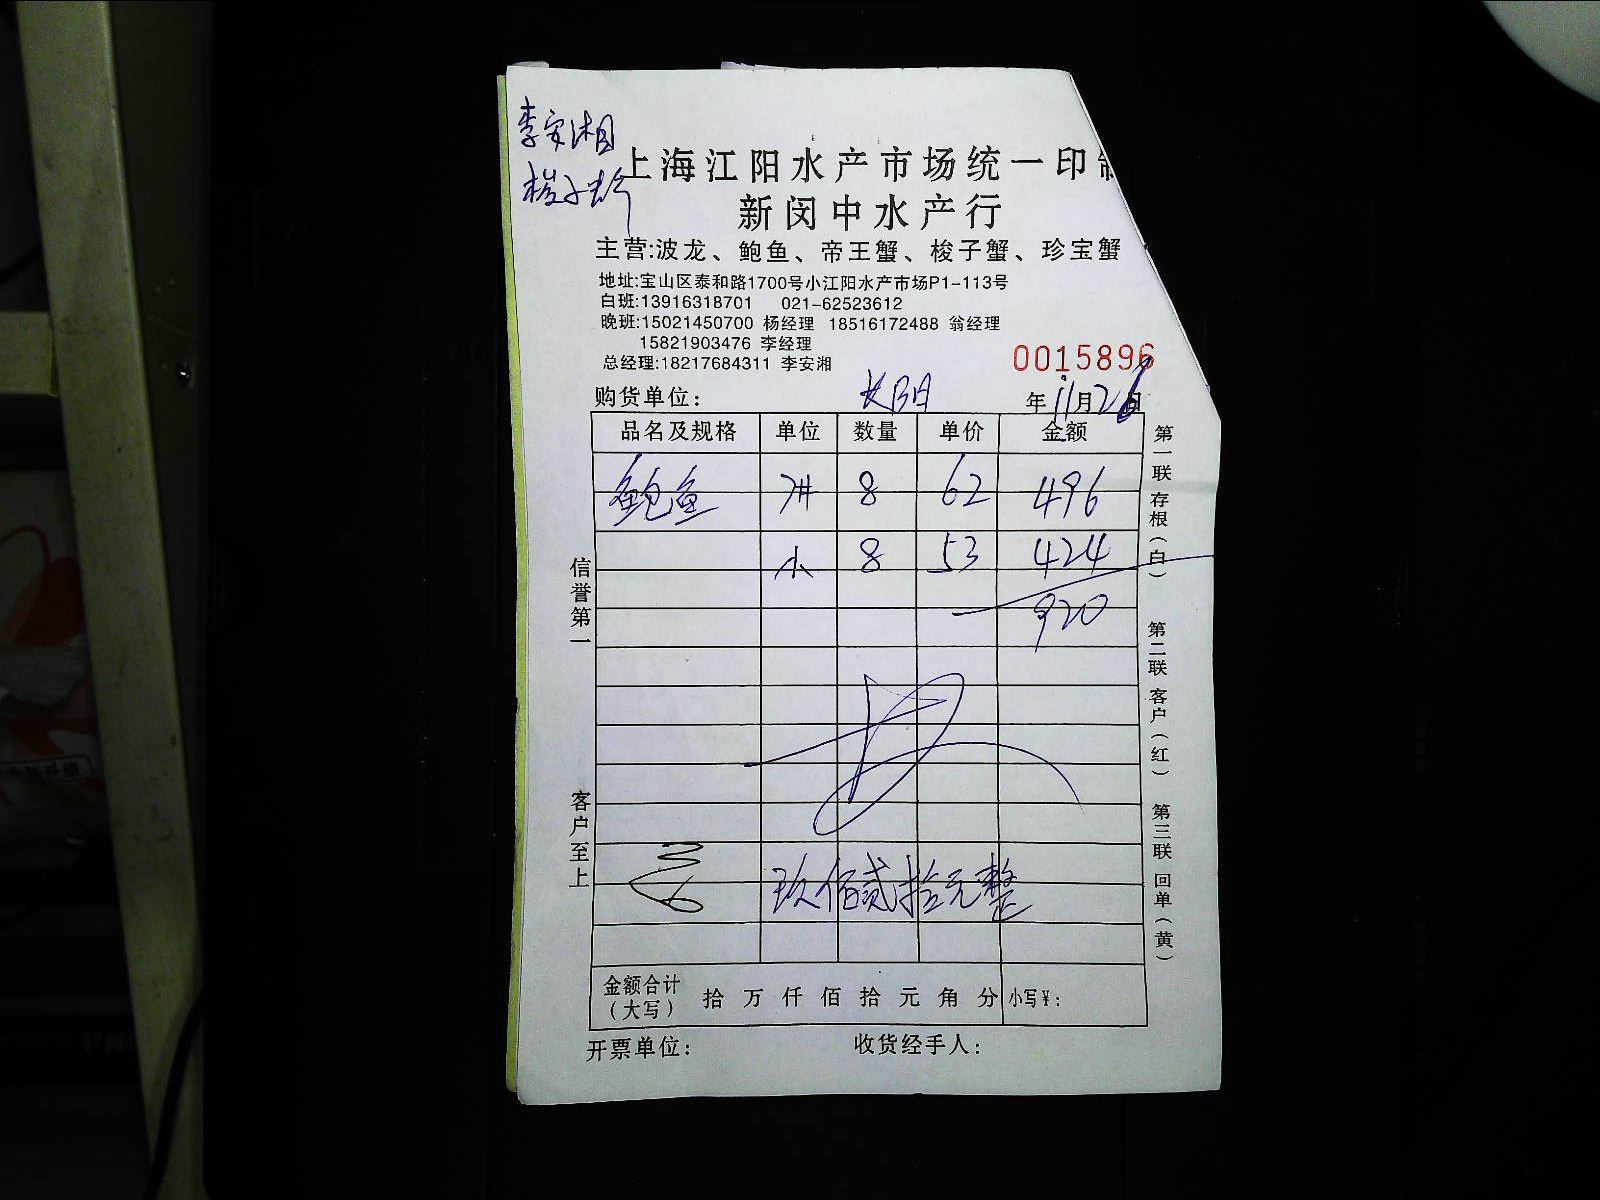 李安湘
上海江阳水产市场统一印制
新闵中水产行
主营:波龙、鲍鱼、帝王蟹、梭子蟹、珍宝蟹
地址:宝山区泰和路1700号小江阳水产市场P1-113号
白班:13916318701 021-62523612
晚班:15021450700 杨经理 18516172488 翁经理
15821903476 李经理
总经理:18217684311 李安湘
0015896
购货单位: 长阳 年11月26日
品名及规格 单位 数量 单价 金额
鲍鱼 8 62 496
小 8 53 424
920
玖佰贰拾元整
金额合计
(大写) 拾 万 仟 佰 拾 元 角 分 小写¥:
开票单位: 收货经手人:
信誉第一
客户至上
第一联 存根(白)
第二联 客户(红)
第三联 回单(黄)